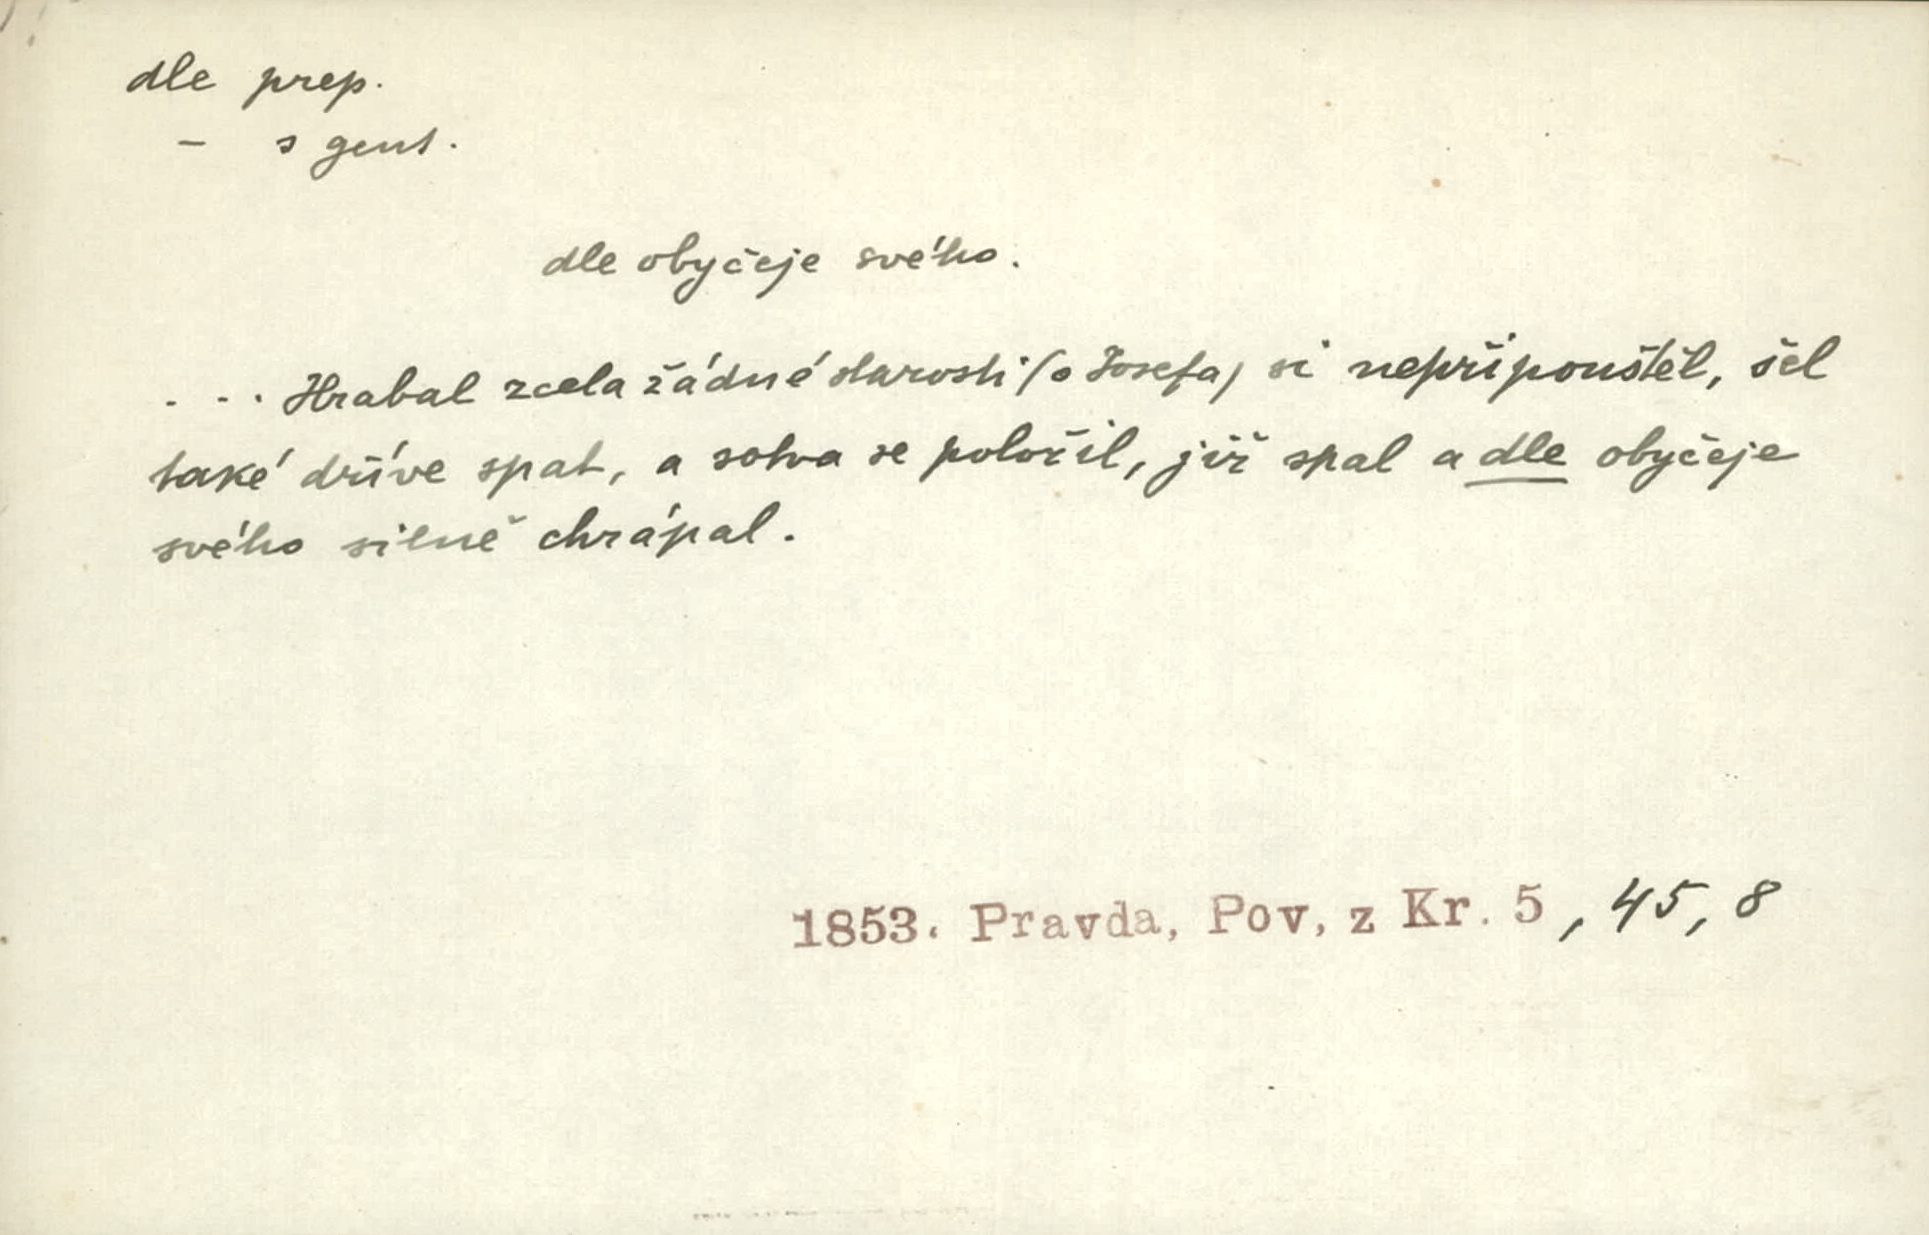 dle prep.
– s gent.
dle obyčeje svého.
. . . Hrabal zcela žádné starosti (o Josefa) si nepřipouštěl, šel
také dříve spat, a sotva se položil, již spal a dle obyčeje
svého silně chrápal.
1853. Pravda, Pov, z Kr. 5, 45, 8